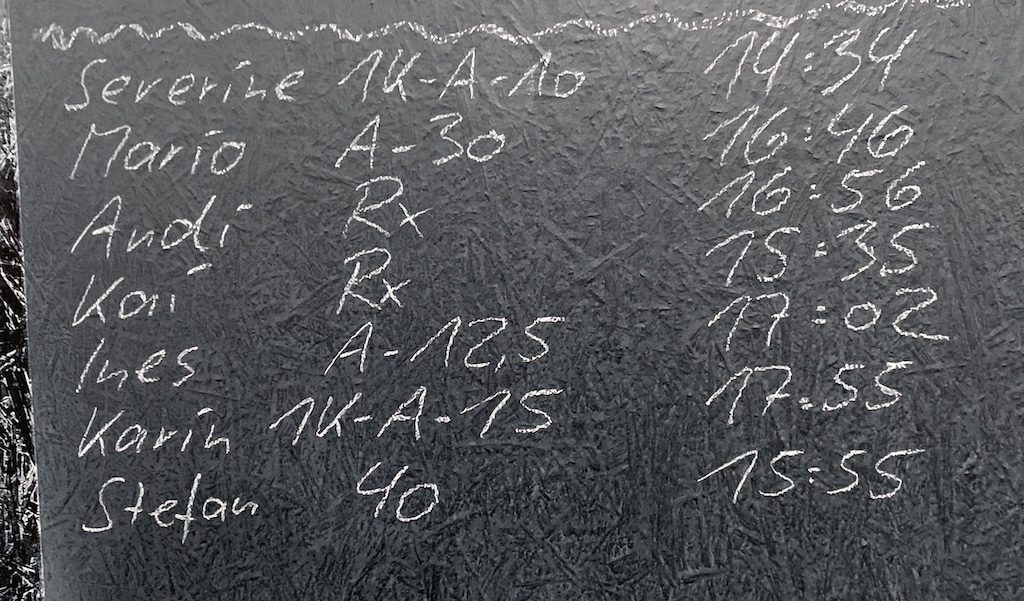 Severine 1K-A-10 14:34
Mario A-30 16:46
Andi Rx 16:56
Kai Rx 15:35
Ines A-12,5 17:02
Karin 1K-A-15 17:55
Stefan 40 15:55